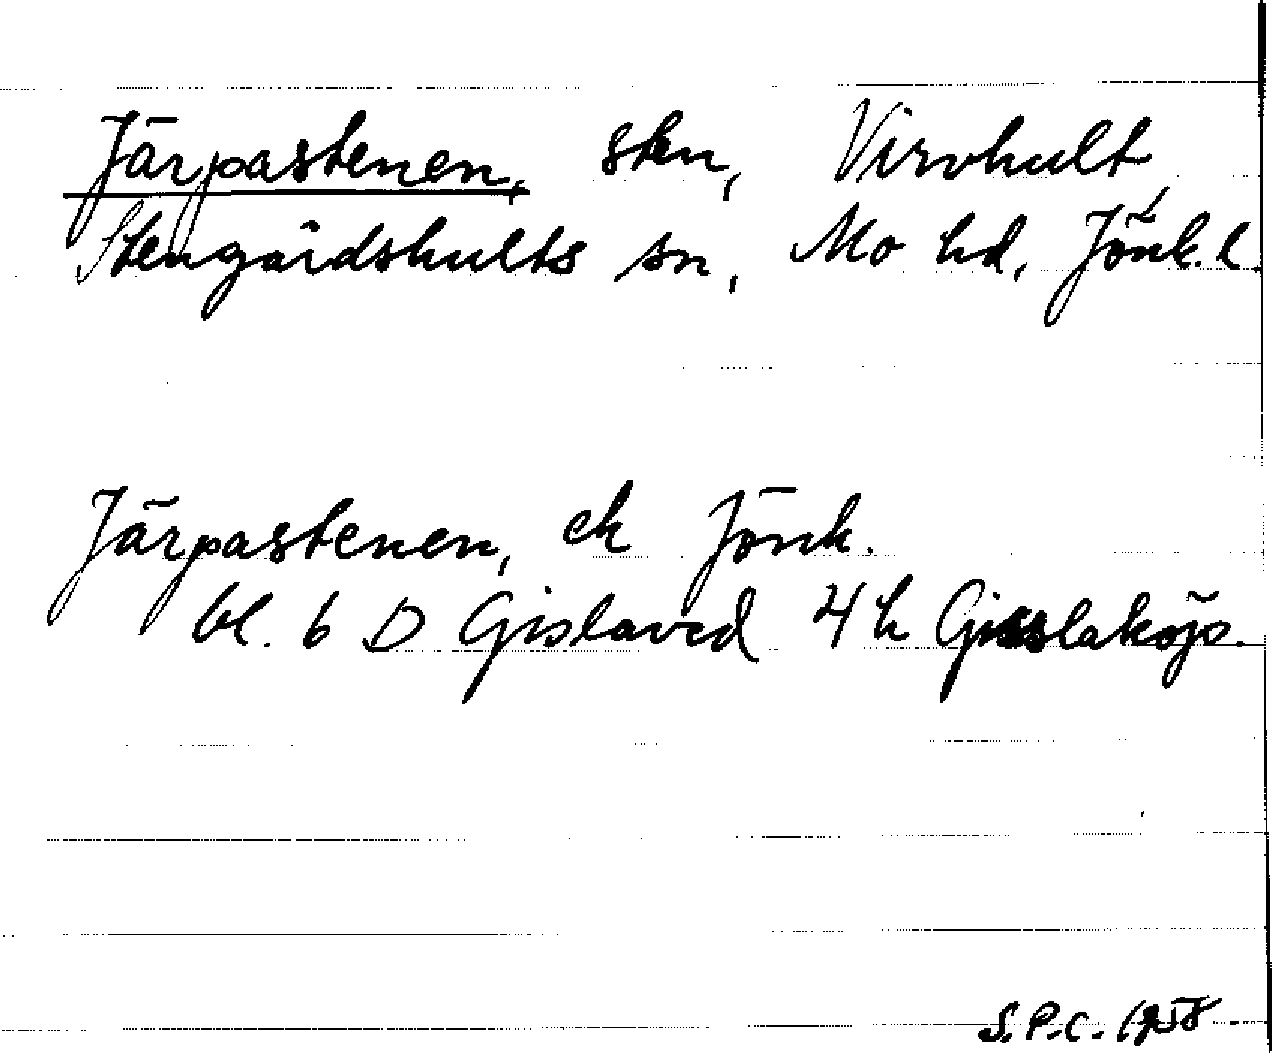 Järpastenen, sten, Virvhult,
Stengårdshults sn, Mo hd, Jönk. l
Järpastenen, ek Jönk.
bl. 6 D Gislaved 4 h Gisslaköp.
S.P.C. 1958.